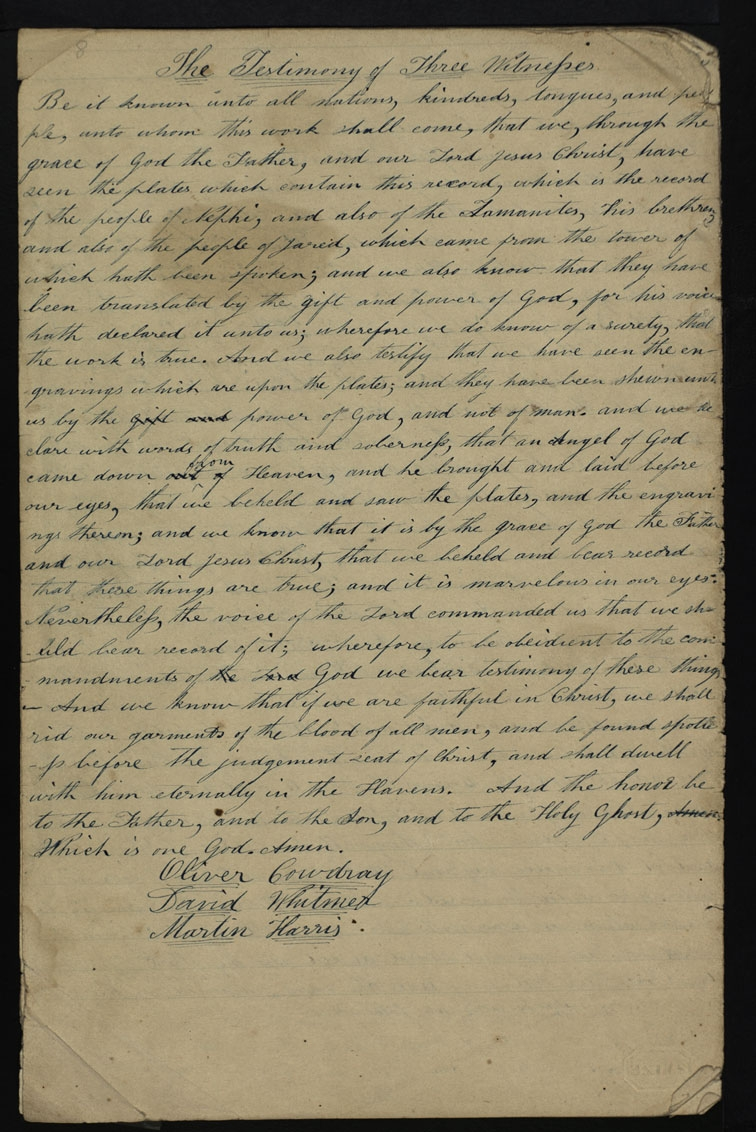 8
The Testimony of Three Witnesses
Be it known unto all nations, kindreds, tongues, and peo
ple, unto whom this work shall come, that we, through the
grace of God the Father, and our Lord Jesus Christ, have
seen the plates which contain this record, which is the record
of the people of Nephi, and also of the Lamanites, his brethren,
and also of the people of Jared, which came from the tower of
which hath been spoken; and we also know that they have
been translated by the gift and power of God, for his voice
hath declared it unto us; wherefore we do know of a surety, that
the work is true. And we also testify that we have seen the en-
gravings which are upon the plates; and they have been shewn unto
us by the gift and power of God, and not of man. and we de
clare with words of truth and soberness, that an Angel of God
came down out of from Heaven, and he brought and laid before
our eyes, that we beheld and saw the plates, and the engravi
ngs thereon; and we know that it is by the grace of God the Father
and our Lord Jesus Christ, that we beheld and bear record
that these things are true; and it is marvelous in our eyes:
Nevertheless, the voice of the Lord commanded us that we sho
-uld bear record of it; wherefore, to be obeidient to the com
-mandments of the Lord God we bear testimony of these things
- And we know that if we are faithful in Christ, we shall
rid our garments of the blood of all men, and be found spotle
-ss before the judgement seat of Christ, and shall dwell
with him eternally in the Havens. And the honor be
to the Father, and to the Son, and to the Holy Ghost, Amen.
Which is one God. Amen.
Oliver Cowdray
David Whitmer
Martin Harris